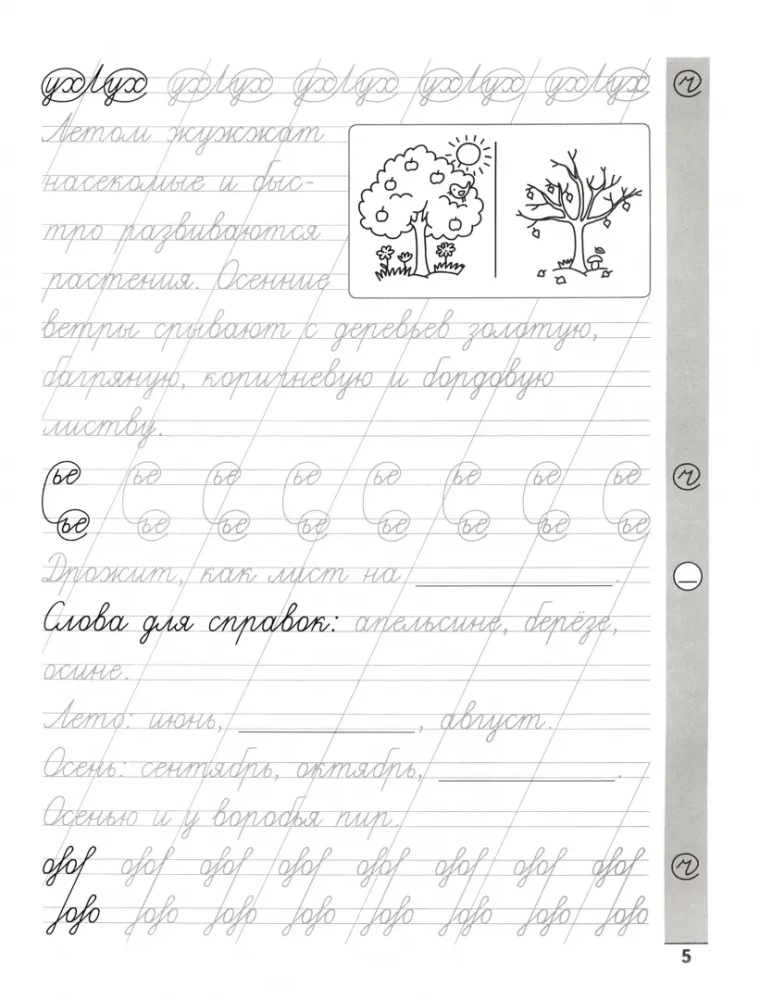 ух ух ух ух ух ух ух ух ух ух
Летом жужжат
насекомые и быс-
тро развиваются
растения. Осенние
ветры срывают с деревьев золотую,
багряную, коричневую и бордовую
листву.
ье ье ье ье ье ье ье ье
ъе ъе ъе ъе ъе ъе ъе ъе
Дрожит, как лист на ____________.
Слова для справок: апельсине, берёзе,
осине.
Лето: июнь, ____________, август.
Осень: сентябрь, октябрь, ____________.
Осенью и у воробья пир.
5